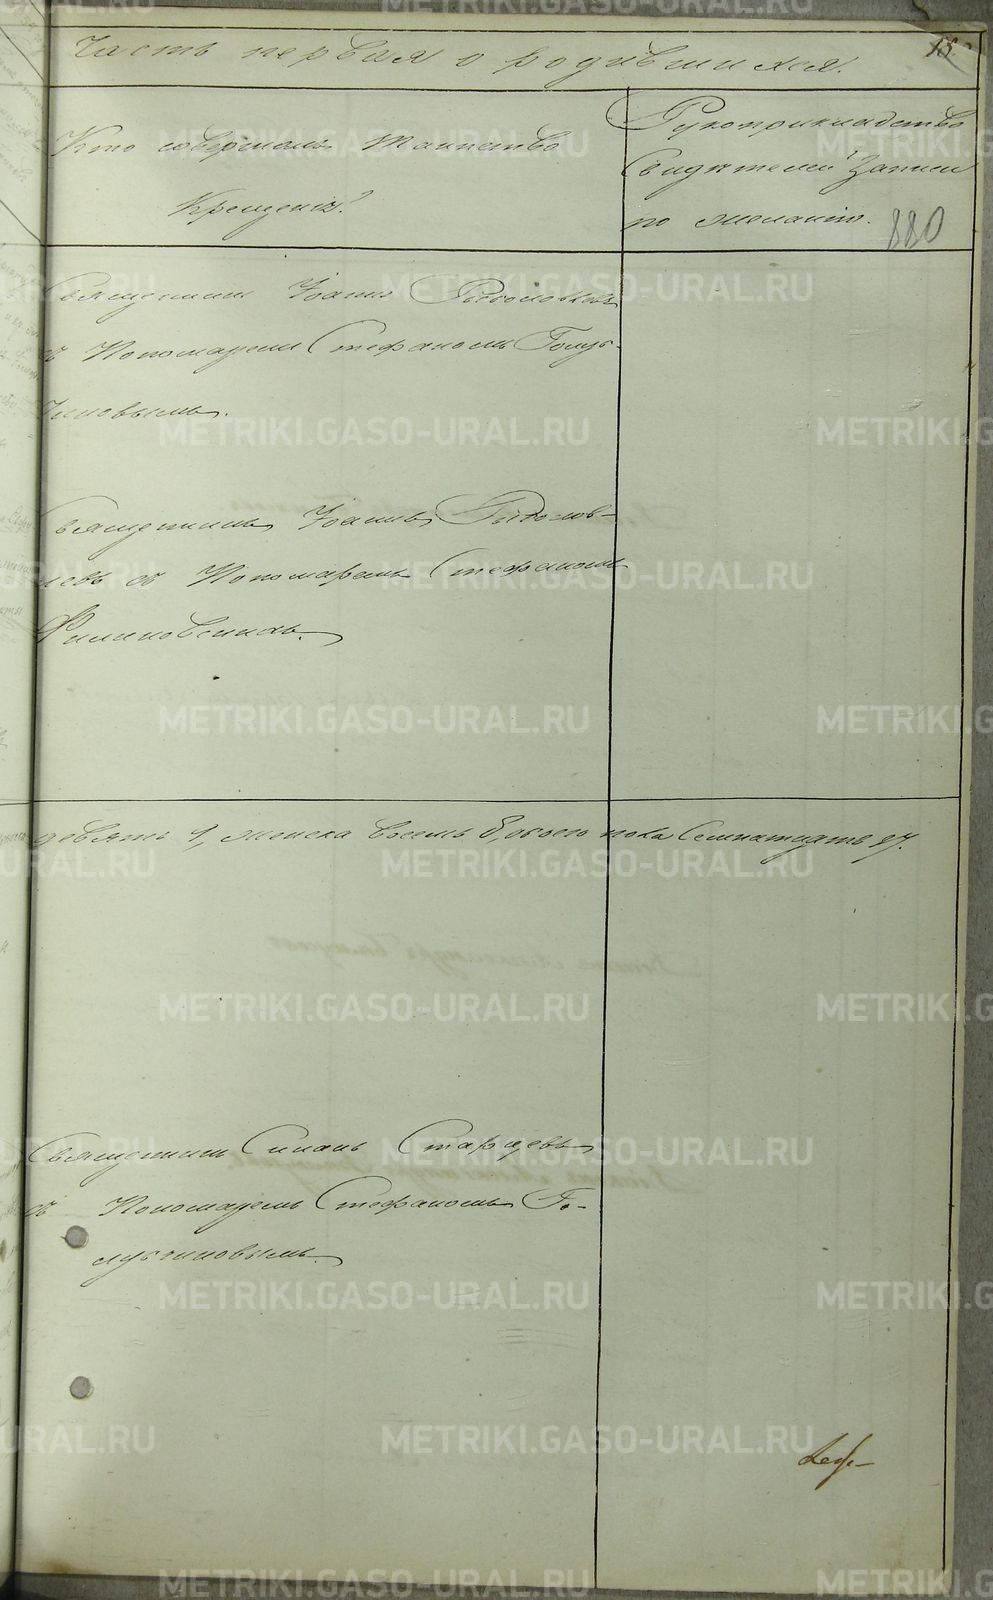 Часть первая о родившихся.
15
Кто совершалъ Таинство
Крещенія?
Рукоприкладство
Свидѣтелей записи
по желанію.
880
Священникъ Іоаннъ
съ Пономаремъ Стефаномъ Голуб-
чиковымъ.
Священникъ Іоаннъ
съ Пономаремъ Стефаномъ
девять 9, женска восемь 8, обоего пола Семнатцать 17.
Священникъ Симонъ Старцевъ
съ Пономаремъ Стефаномъ Го-
лубчиковымъ.
METRIKI.GASO-URAL.RU